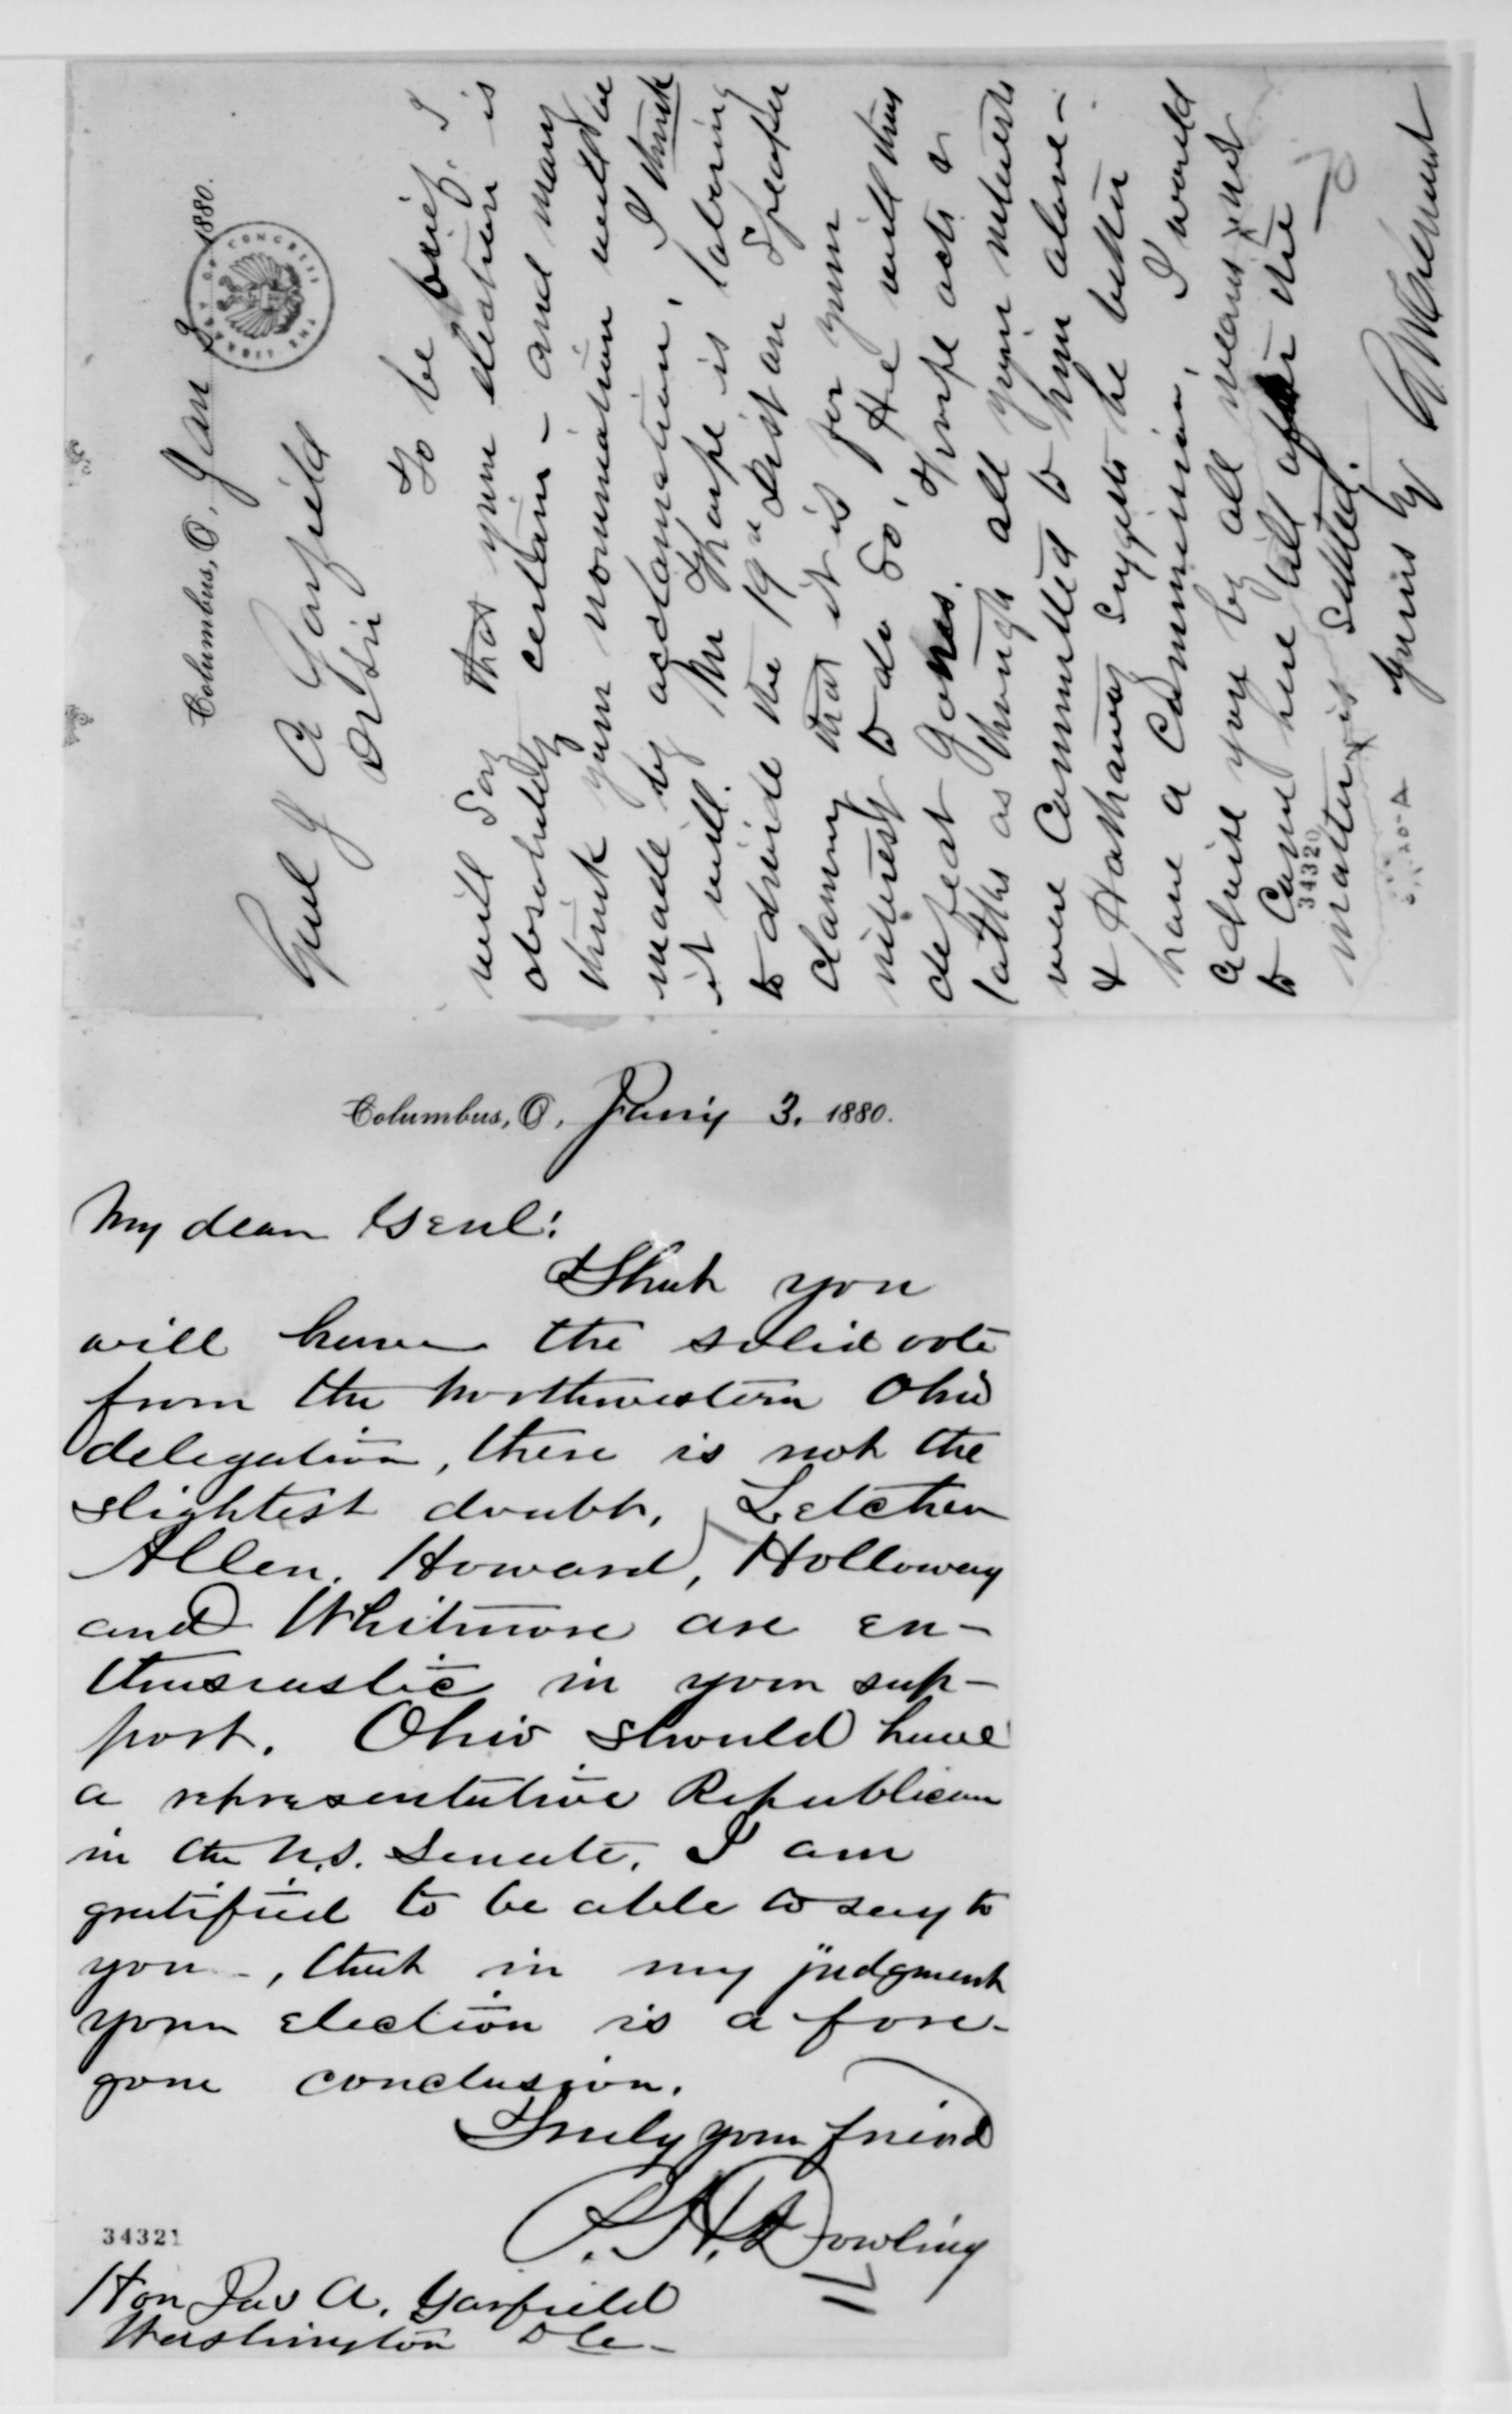 Columbus, O, Jan 3 1880.
LIBRARY OF CONGRESS
Genl J A Garfield
Dr Sir
To be brief. I
will say that your election is
absolutely certain - and many
think your nomination will be
made by acclamation, I think
it will. Mr Thorpe is laboring
to divide the 19th Dist on Speaker
claiming that it is for your
interest to do so, He will thus
defeat Jones. Thorpe acts &
talks as though all your interests
were Committed to him alone -
& Hathaway suggests he better
have a Commission, I would
advise you by all means not
to Come here till after the
matter is settled.
34320
Yours ty
My dear Genl:
Columbus, O, Jan'y 3. 1880.
That you
will have the solid vote
from the Northwestern Ohio
delegation, there is not the
slightest doubt, Letcher
Allen, Howard, Holloway
and Whitmore are en-
thusiastic in your sup-
port. Ohio should have
a representative Republican
in the U.S. Senate. I am
gratified to be able to say to
you -, that in my judgment
your election is a fore-
gone conclusion.
Truly your friend
P. H. Dowling
34321
Hon Jas A. Garfield
Washington DC -